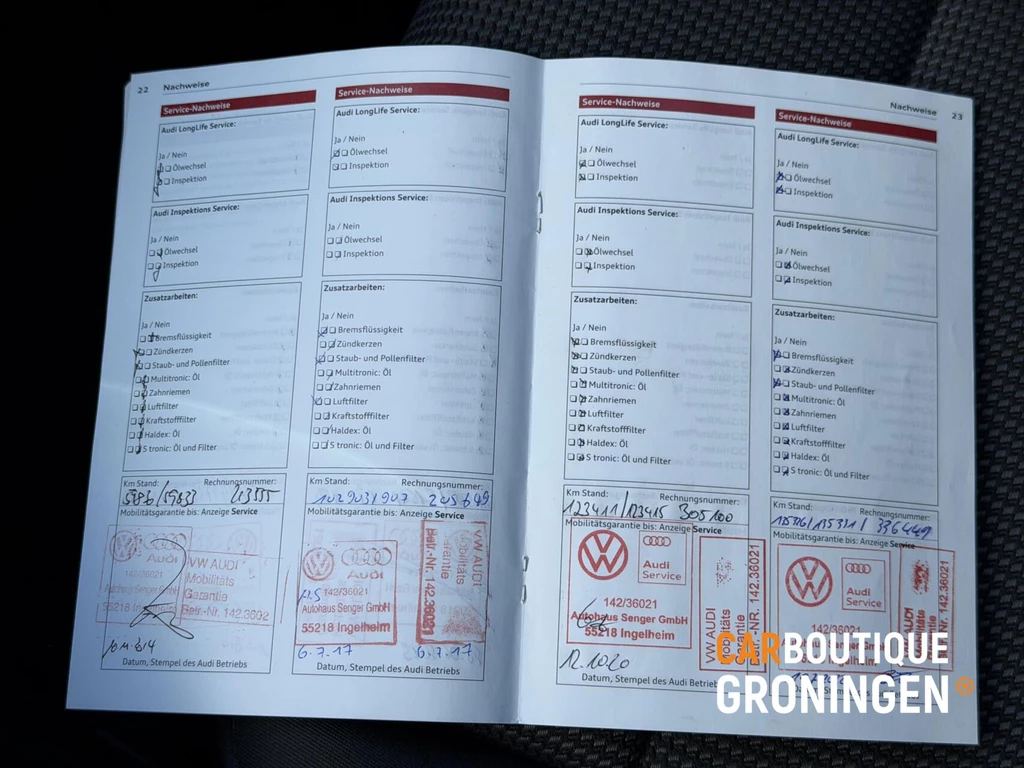 22 Nachweise
Service-Nachweise
Audi LongLife Service:
Ja / Nein
Ölwechsel
Inspektion
Audi Inspektions Service:
Ja / Nein
Ölwechsel
Inspektion
Zusatzarbeiten:
Ja / Nein
Bremsflüssigkeit
Zündkerzen
Staub- und Pollenfilter
Multitronic: Öl
Zahnriemen
Luftfilter
Kraftstofffilter
Haldex: Öl
S tronic: Öl und Filter
Km Stand: Rechnungsnummer:
Mobilitätsgarantie bis: Anzeige Service
Audi
142/36021
55218 Ingelheim
VW AUDI
Mobilitäts
Garantie
Betr.-Nr. 142.3602
Datum, Stempel des Audi Betriebs
Service-Nachweise
Audi LongLife Service:
Ja / Nein
Ölwechsel
Inspektion
Audi Inspektions Service:
Ja / Nein
Ölwechsel
Inspektion
Zusatzarbeiten:
Ja / Nein
Bremsflüssigkeit
Zündkerzen
Staub- und Pollenfilter
Multitronic: Öl
Zahnriemen
Luftfilter
Kraftstofffilter
Haldex: Öl
S tronic: Öl und Filter
Km Stand: Rechnungsnummer:
102903/907 245649
Mobilitätsgarantie bis: Anzeige Service
Audi
142/36021
Autohaus Senger GmbH
55218 Ingelheim
VW AUDI
Mobilitäts
Garantie
Betr.-Nr. 142.36021
6.7.17 6.7.17
Datum, Stempel des Audi Betriebs
Nachweise 23
Service-Nachweise
Audi LongLife Service:
Ja / Nein
Ölwechsel
Inspektion
Audi Inspektions Service:
Ja / Nein
Ölwechsel
Inspektion
Zusatzarbeiten:
Ja / Nein
Bremsflüssigkeit
Zündkerzen
Staub- und Pollenfilter
Multitronic: Öl
Zahnriemen
Luftfilter
Kraftstofffilter
Haldex: Öl
S tronic: Öl und Filter
Km Stand: Rechnungsnummer:
123411/123415 305100
Mobilitätsgarantie bis: Anzeige Service
Audi
Service
142/36021
Autohaus Senger GmbH
55218 Ingelheim
VW AUDI
Mobilitäts
Garantie
Betr.-NR. 142.36021
12.10.20
Datum, Stempel des Audi Betriebs
Service-Nachweise
Audi LongLife Service:
Ja / Nein
Ölwechsel
Inspektion
Audi Inspektions Service:
Ja / Nein
Ölwechsel
Inspektion
Zusatzarbeiten:
Ja / Nein
Bremsflüssigkeit
Zündkerzen
Staub- und Pollenfilter
Multitronic: Öl
Zahnriemen
Luftfilter
Kraftstofffilter
Haldex: Öl
S tronic: Öl und Filter
Km Stand: Rechnungsnummer:
336449
Mobilitätsgarantie bis: Anzeige Service
Audi
Service
142/36021
VW AUDI
142.36021
CARBOUTIQUE
GRONINGEN